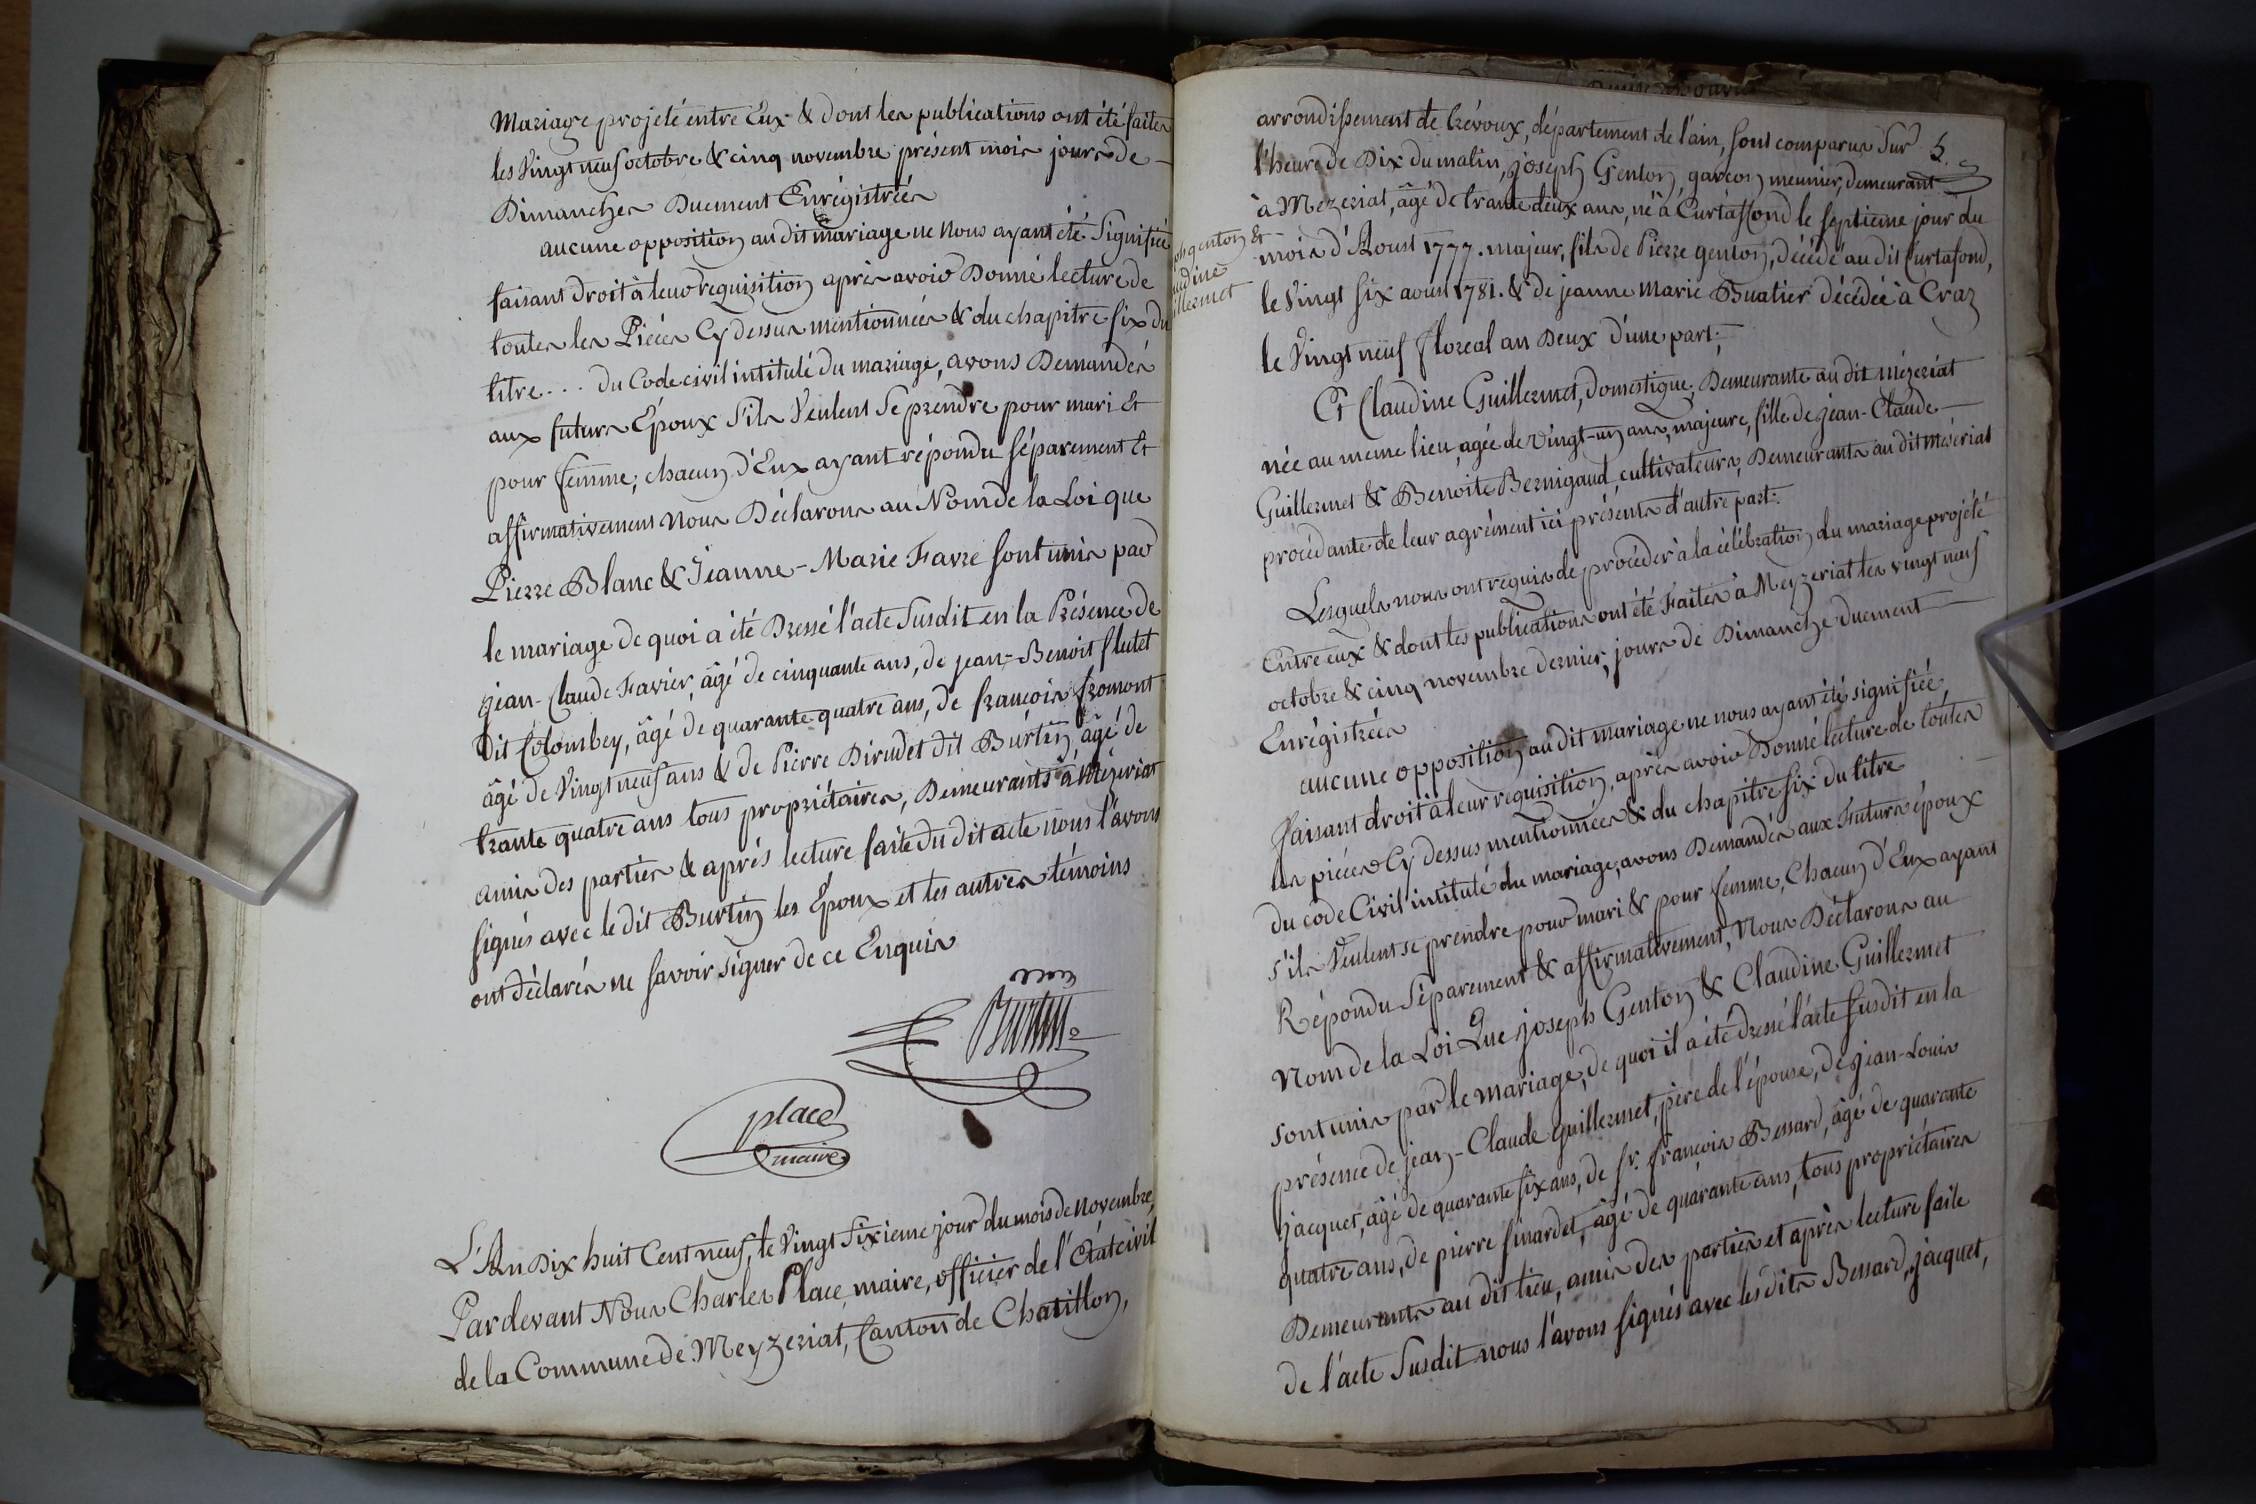 Mariage projeté entre Eux & dont les publications ont été faites
les Vingt neuf octobre & cinq novembre présent mois jours de —
Dimanches Duement Enrégistrées
aucune opposition au dit mariage ne Nous ayant été Signifiée
faisant droit à leur requisition après avoir Donné lecture de
toutes les Piéces Cy dessus mentionnées & du chapitre six du
titre . . . du Code civil intitulé du mariage, avons Demandés
aux futurs Époux S'ils Veulent Se prendre pour mari Et
pour femme; chacun d'Eux ayant répondu séparement Et
affirmativement Nous Déclarons au Nom de la Loi que
Pierre Blanc & Jeanne-Marie Favre sont unis par
le mariage de quoi a été Dressé l'acte Susdit en la Présence de
jean-Claude Favier, âgé de cinquante ans, de jean-Benoit flutet
dit Colombey, âgé de quarante quatre ans, de françois fromont
âgé de Vingt neuf ans & de Pierre Dirudet dit Burtin, âgé de
trante quatre ans tous propriétaires, Demeurants à Mézeriat
amis des parties & après lecture faite du dit acte nous l'avons
signés avec le dit Burtin les Époux et les autres témoins
ont déclarés ne savoir signer de ce Enquis
Burtin
place
maire
L'An Dix huit Cent neuf, le Vingt Sixieme jour du mois de novembre,
Pardevant Nous Charles Place maire, officier de l'État civil
de la Commune de Meyzeriat, Canton de Chatillon,
arrondissement de trévoux, département de l'ain, sont comparus Sur
5.
l'heure de Dix du matin, joseph Genton, garçon meunier, demeurant
à Mezeriat, âgé de trante deux ans, né à Curtassond le septieme jour du
mois d'Aoust 1777. majeur, fils de Pierre genton, décédé au dit Curtafond,
le Vingt six aoust 1781. & de jeanne Marie Buatier décédée à Craz
le Vingt neuf floreal an Deux d'une part.
genton &
Et Claudine Guillermet, Domestique, Demeurante au dit mézeriat
née au meme lieu, agée de vingt-un ans, majeure, fille de jean-Claude —
Guillermet & Benoite Bernigaud cultivateurs, Demeurants au dit Meseriat
procédante de leur agrément ici présents d'autre part.
Lesquels nous ont requis de procéder à la célébration du mariage projété
Entre eux & dont les publications ont été Faites à Meyzeriat les vingt neuf
octobre & cinq novembre dernier, jours de Dimanche duement —
Enrégistrées
aucune opposition au dit mariage ne nous ayant été signifiée,
Faisant droit à leur requisition, après avoir Donné lecture de toutes
les piéces Cy dessus mentionnées & du chapitre six du titre
du code Civil intitulé du mariage, avons Demandés aux Futurs époux
s'ils Veulent se prendre pour mari & pour femme, Chacun d'Eux ayant
Répondu Séparement & affirmativement, Nous Déclarons au
Nom de la Loi Que joseph Genton & Claudine Guillermet
sont unis par le mariage, de quoi il a été dressé l'acte susdit en la
présence de jean-Claude guillermet, père de l'épouse, de jean-Louis
jacquet, âgé de quarante six ans, de fr. françois Bessard, âgé de quarante
quatre ans, de pierre sinardet, âgé de quarante ans, tous propriétaires
Demeurants au dit lieu, amis des parties et après lecture faite
de l'acte Susdit nous l'avons signés avec les dits Bessard, jacquet,